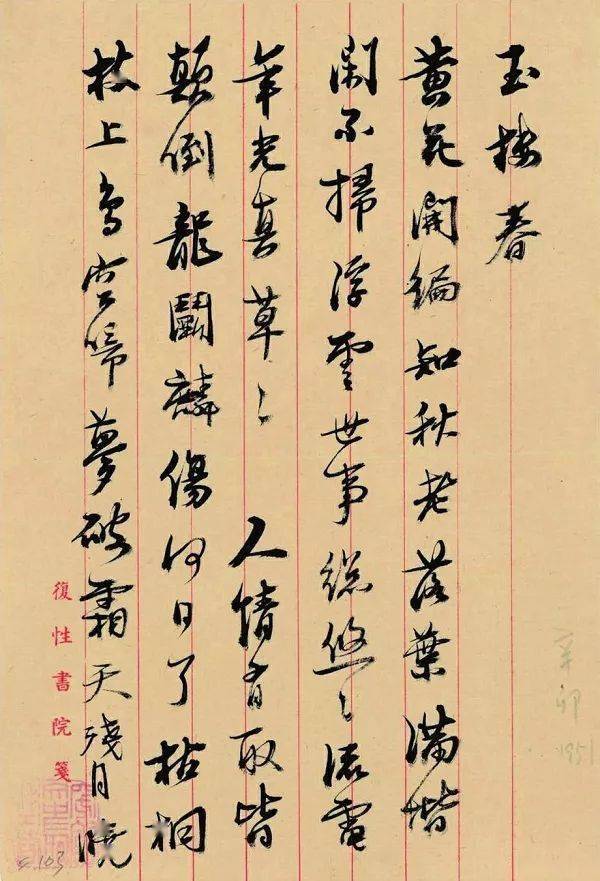 玉樓春
黄花開徧知秋老落葉滿堦
閑不掃浮雲世事總悠〻流電
年光真草〻 人情有取皆
顛倒龍鬬麟傷何日了枯桐
枝上鳥空啼夢破霜天殘月曉
復性書院箋
辛卯
1951